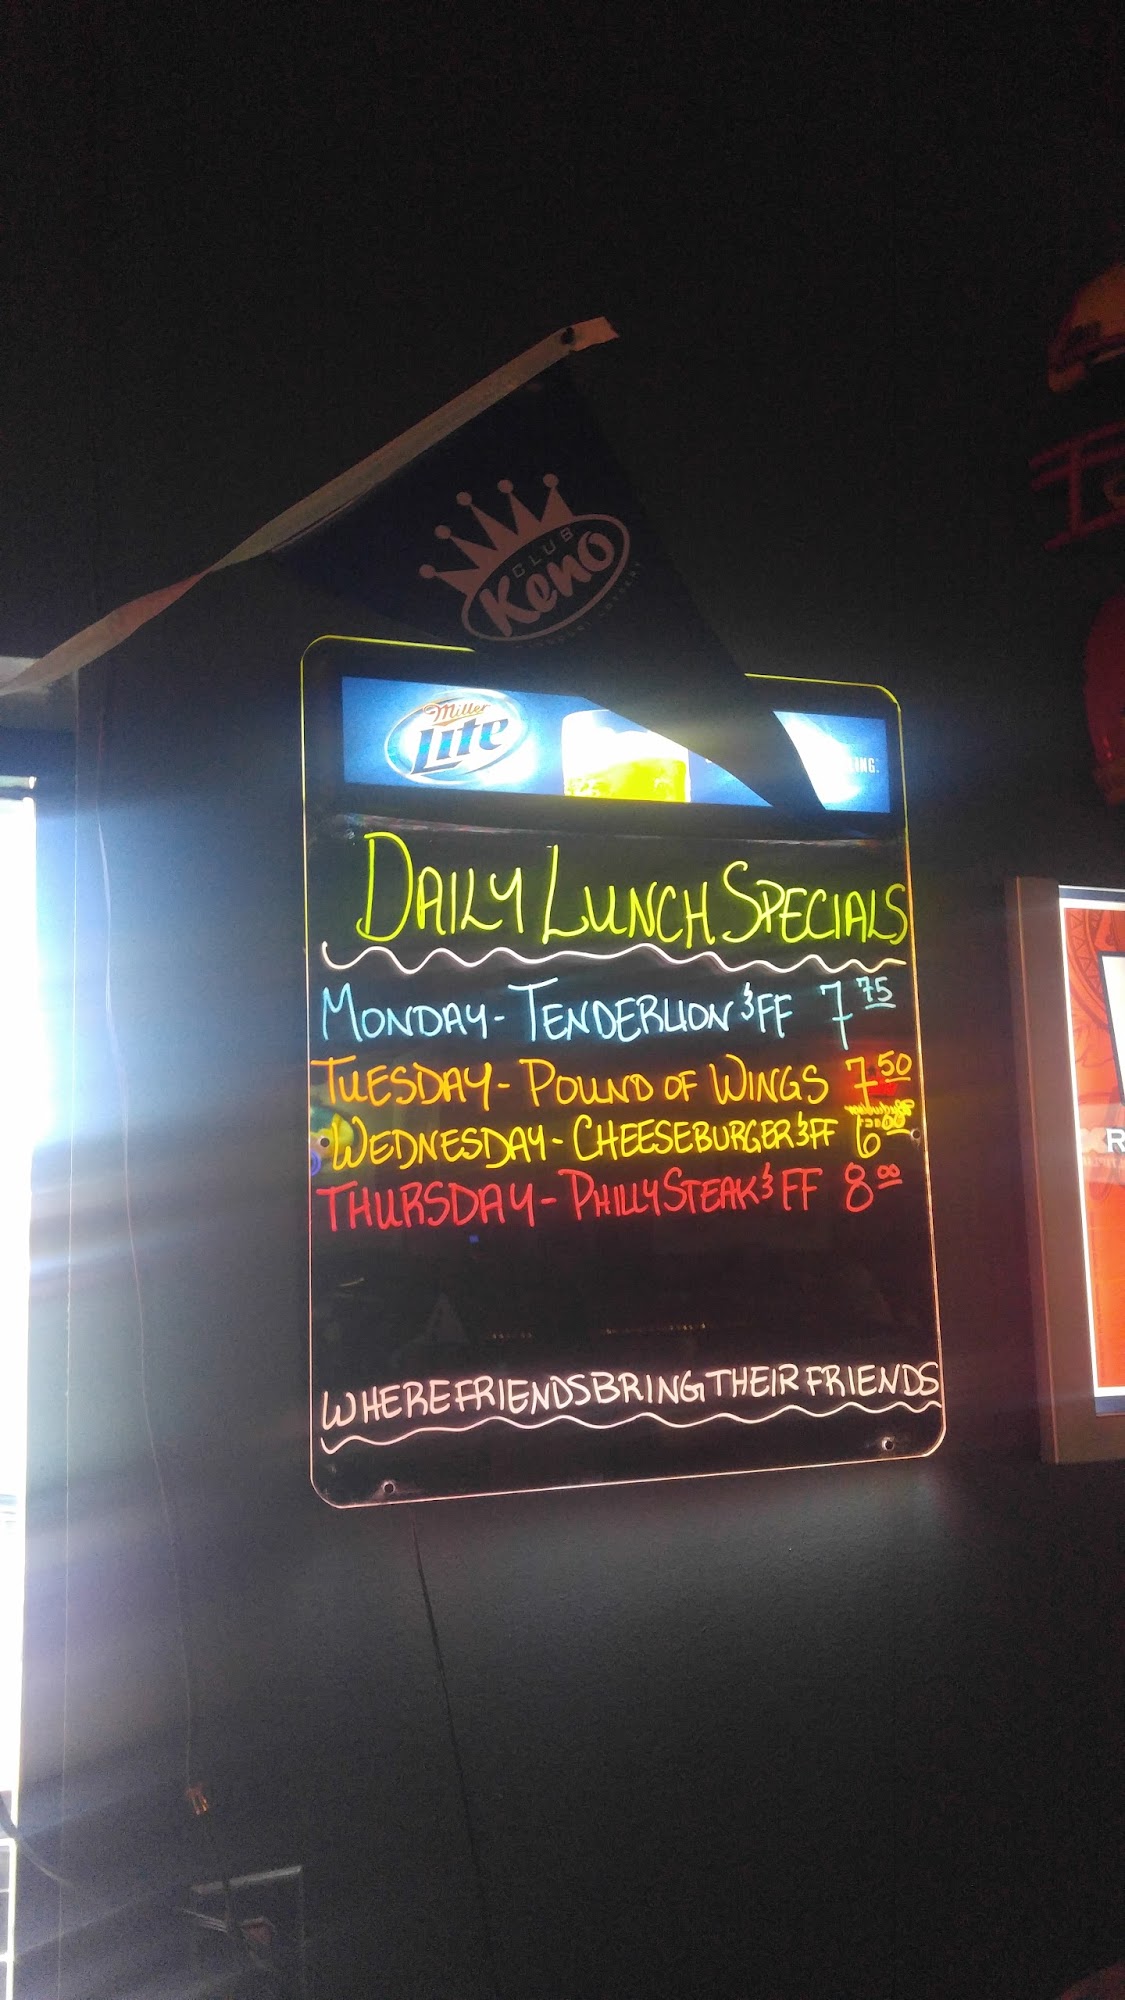 CLUB
Keno
Miller
Lite
ING.
DAILY LUNCH SPECIALS
MONDAY - TENDERLION & FF 7 75
TUESDAY - POUND OF WINGS 7 50
WEDNESDAY - CHEESEBURGER & FF 6 00
THURSDAY - PHILLY STEAK & FF 8 00
WHERE FRIENDS BRING THEIR FRIENDS